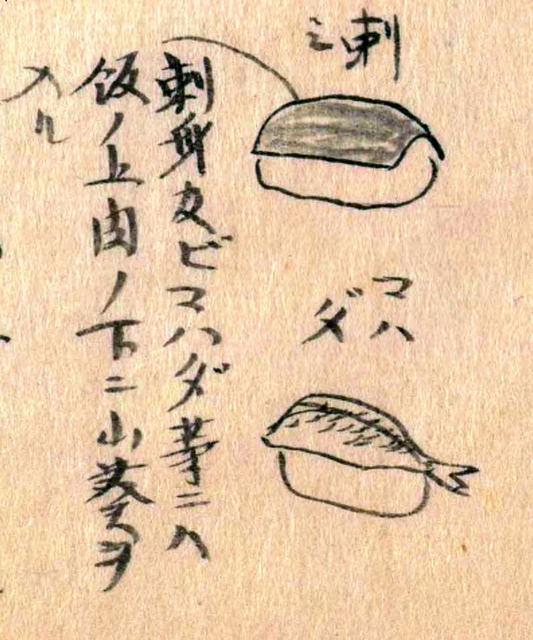 刺ミ
マハ
ダ
刺身及ビマハダ等ニハ
飯ノ上肉ノ下ニ山葵ヲ
入ル